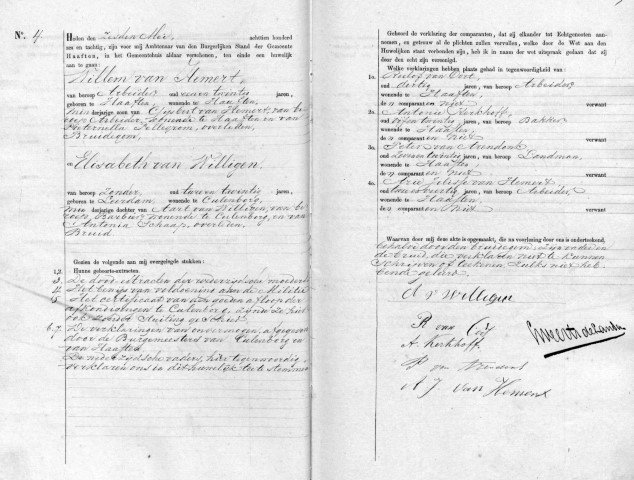 N°. 4
Heden den zesden Mei, achttien honderd
zes en tachtig, zijn voor mij Ambtenaar van den Burgerlijken Stand der Gemeente
Haaften, in het Gemeentehuis aldaar verschenen, ten einde een huwelijk
aan te gaan:
Willem van Hemert,
van beroep Arbeider, oud twintig jaren,
geboren te Haaften, wonende te Haaften,
minderjarige zoon van Gijsbert van Hemert, van be-
roep Arbeider, wonende te Haaften en van
Pieternella Pellegrom, overleden,
Bruidegom,
en Elisabeth van Willigen,
van beroep zonder, oud twee en twintig jaren,
geboren te Leerdam, wonende te Culenborg,
minderjarige dochter van Aart van Willigen, van be-
roep Barbier, wonende te Culenborg, en van
Antonia Schaap, overleden,
Bruid
Gezien de volgende aan mij overgelegde stukken:
1,2. Hunne geboorte-extracten.
3. De dood extracten der wederzijdsche moeders
4. Het bewijs van voldoening aan de Militie
5. Het certificaat van den afloop der
afkondigingen te Culenborg, zijnde ze hier
ook zonder stuiting geschied
6.7. De verklaringen van onvermogen, afgegeven
door de Burgemeesters van Culenborg en
van Haaften.
De wederzijdsche vaders, hier tegenwoordig,
verklaren ons in dit huwelijk toe te stemmen
Gehoord de verklaring der comparanten, dat zij elkander tot Echtgenooten aan-
nemen, en getrouw al de plichten zullen vervullen, welke door de Wet aan den
Huwelijken staat verbonden zijn, heb ik in naam der wet uitspraak gedaan dat zij
door den echt zijn vereenigd.
Welke verklaringen hebben plaats gehad in tegenwoordigheid van:
1o. Roelof van Oort,
oud dertig jaren, van beroep Arbeider,
wonende te Haaften,
de comparanten niet verwant
2o. Antonie Kerkhoff,
oud vijf en twintig jaren, van beroep Bakker,
wonende te Haaften,
de comparanten niet verwant
3o. Peter van Arendonk,
oud twintig jaren, van beroep Landman,
wonende te Haaften
de comparanten niet verwant
4o. Arie van Hemert,
oud jaren, van beroep Arbeider,
wonende te Haaften,
de comparanten niet verwant
Waarvan door mij deze akte is opgemaakt, die na voorlezing door ons is onderteekend,
behalve door den bruidegom, zijn vader en
de bruid die verklaren niet te kunnen
schrijven of teekenen zulks niet heb-
bende geleerd.
A v Willigen
R van Oort
A. Kerkhoff
P van Arendonk
A J van Hemert